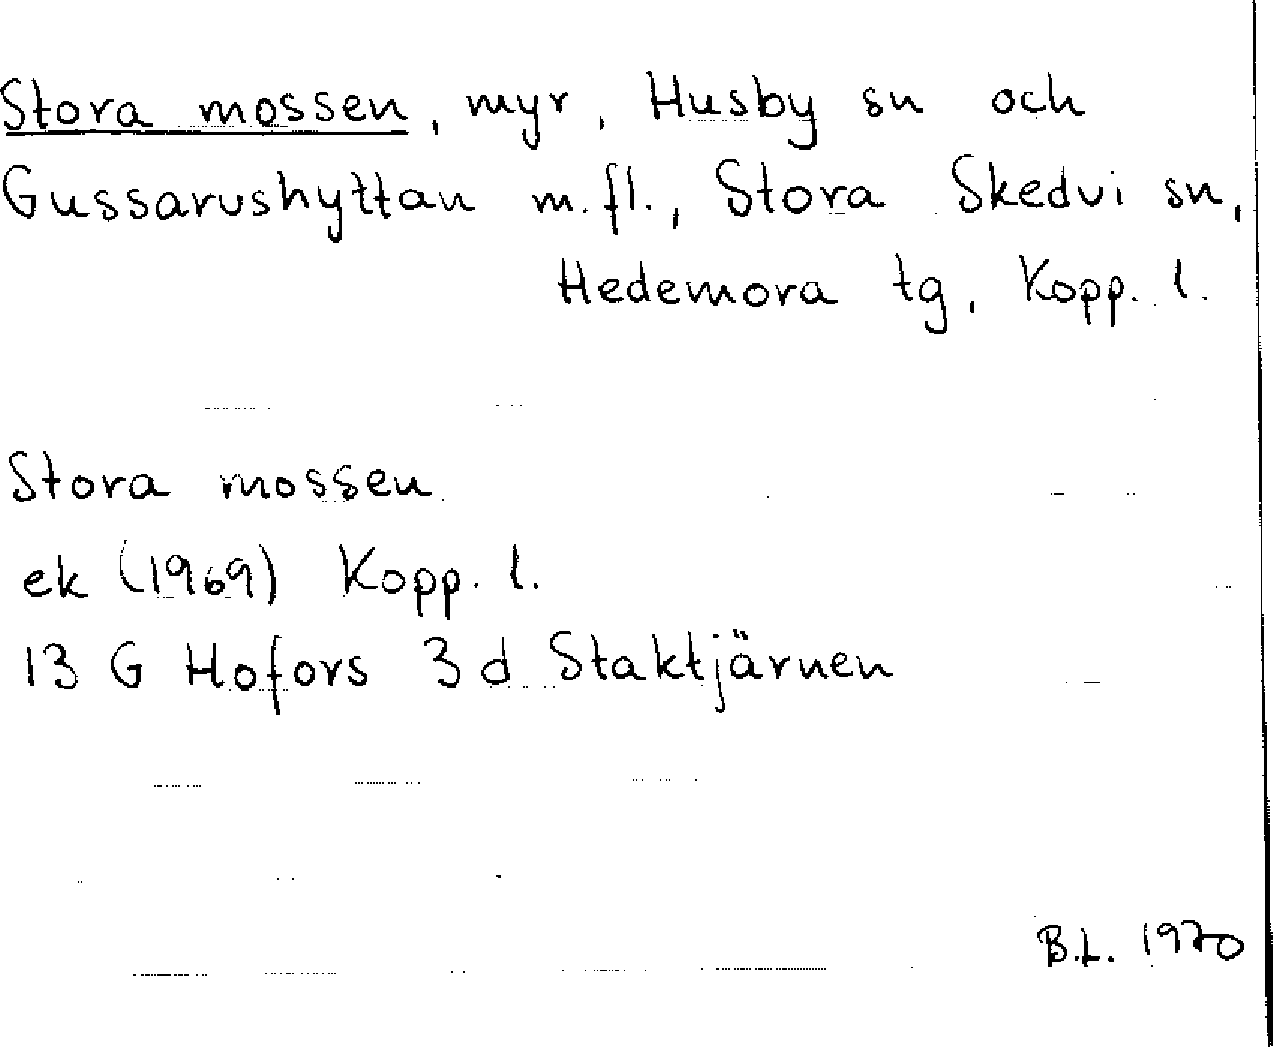 Stora mossen, myr, Husby sn och
Gussarushyttan m.fl., Stora Skedvi sn,
Hedemora tg, Kopp. l.
Stora mossen
ek (1969) Kopp. l.
13 G Hofors 3 d Staktjärnen
B.L. 1970